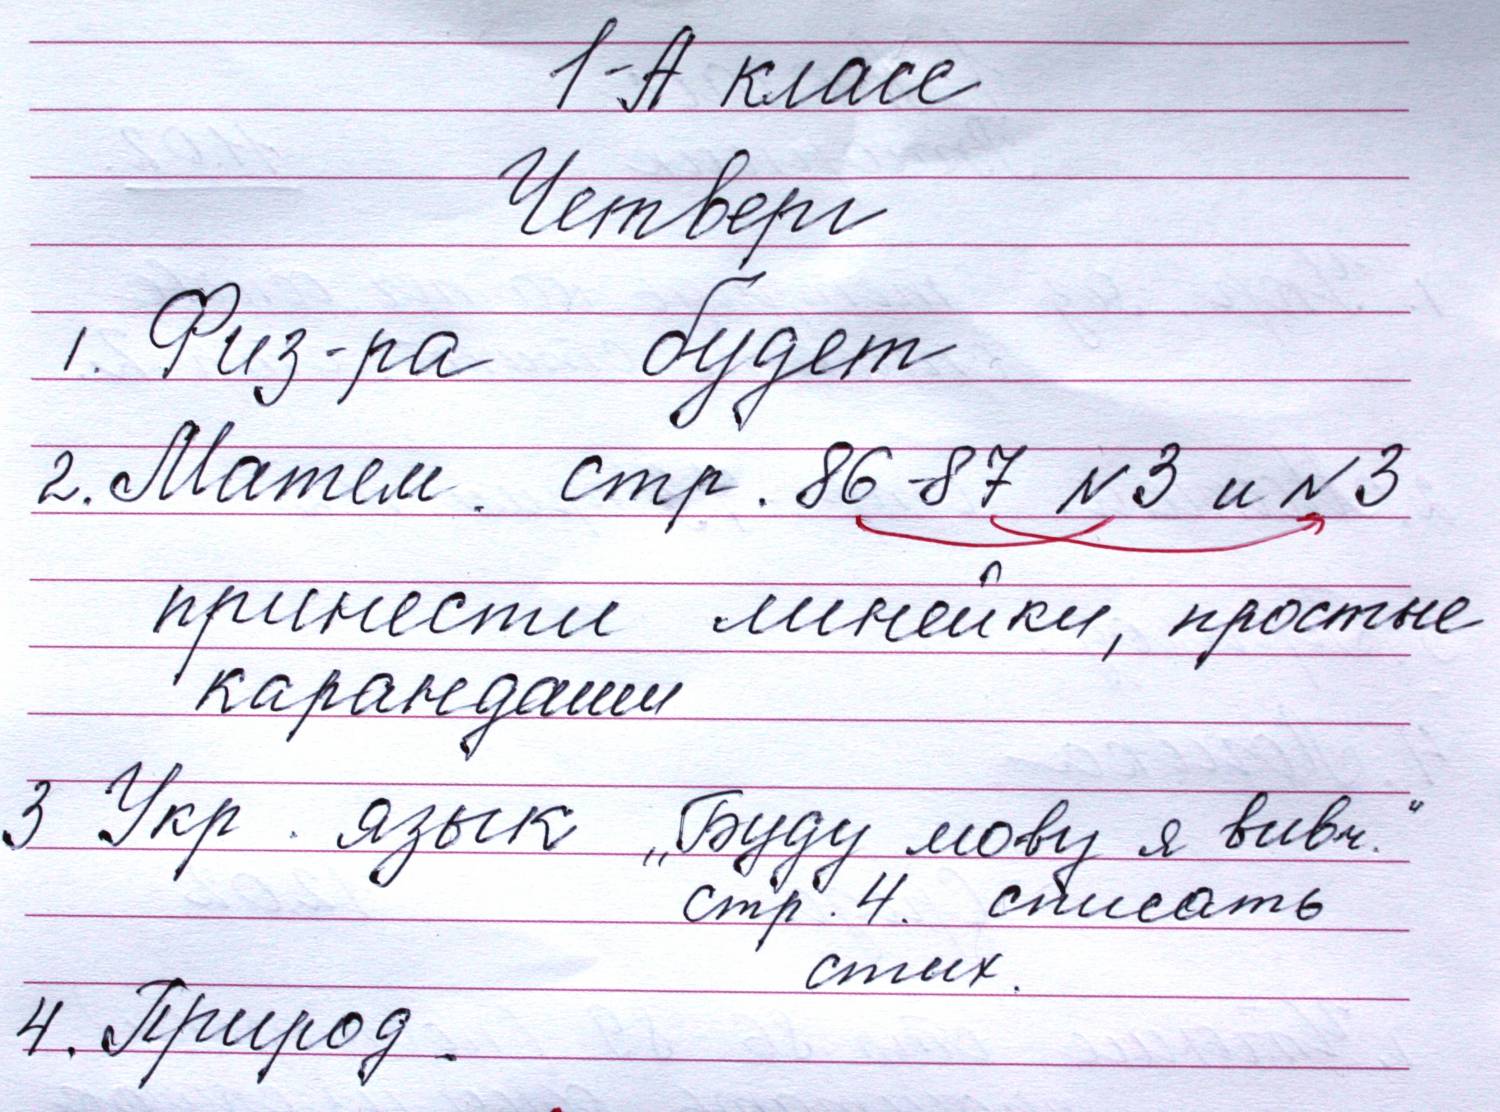 1-А класс
Четверг
1. Физ-ра будет
2. Матем. стр. 86-87 №3 и №3
принести линейки, простые
карандаши
3 Укр. язык „Буду мову я вивч."
стр. 4. списать
стих.
4. Природ.